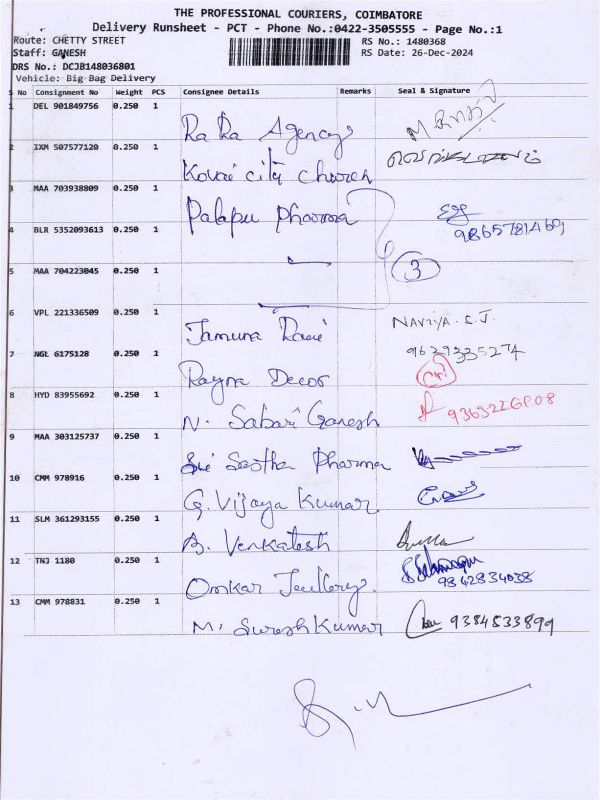 THE PROFESSIONAL COURIERS, COIMBATORE
Delivery Runsheet - PCT - Phone No.:0422-3505555 - Page No.:1
Route: CHETTY STREET RS No.: 1480368
Staff: GANESH RS Date: 26-Dec-2024
DRS No.: DCJB148036801
Vehicle: Big Bag Delivery
S No Consignment No Weight PCS Consignee Details Remarks Seal & Signature
1 DEL 901849756 0.250 1 Ra Ra Agencys
2 IXM 507577120 0.250 1 Kovai citi church
3 MAA 703938809 0.250 1 Palapu Pharma
4 BLR 5352093613 0.250 1
5 MAA 704223045 0.250 1 3
6 VPL 221336509 0.250 1 Jamuna Rani NAVIYA.S.J.
7 NGL 6175128 0.250 1 Rayna Decor 9629335274
8 HYD 83955692 0.250 1 N. Sabari Ganesh
9 MAA 303125737 0.250 1 Sri Sastha Pharma
10 CMM 978916 0.250 1 G. Vijaya Kumar
11 SLM 361293155 0.250 1 B. Venkatesh
12 TNJ 1180 0.250 1 Omkar 9842834038
13 CMM 978831 0.250 1 M. Suresh Kumar 9384533899